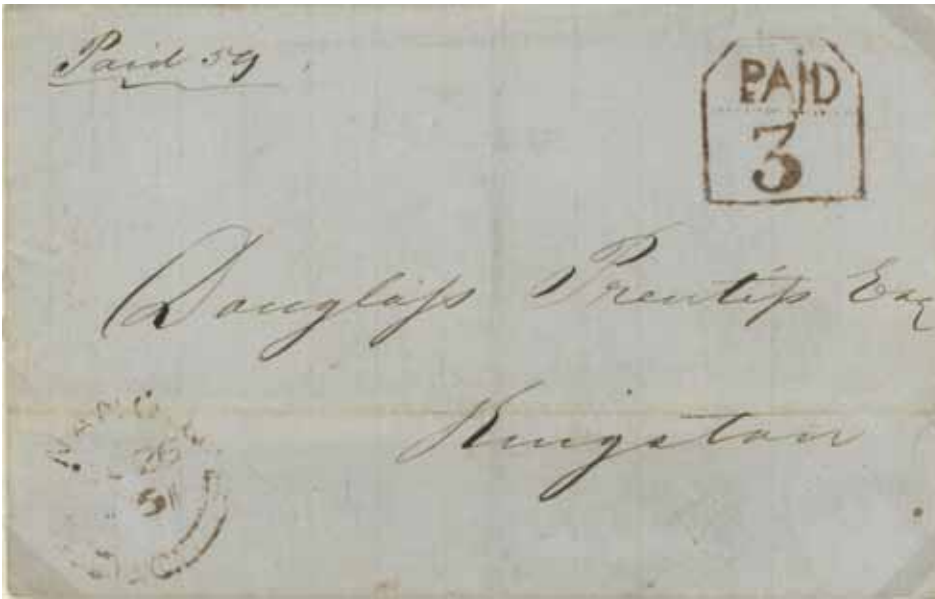 Paid 59
PAID
3
Douglaſs Prentiſs Esq
Kingston
26